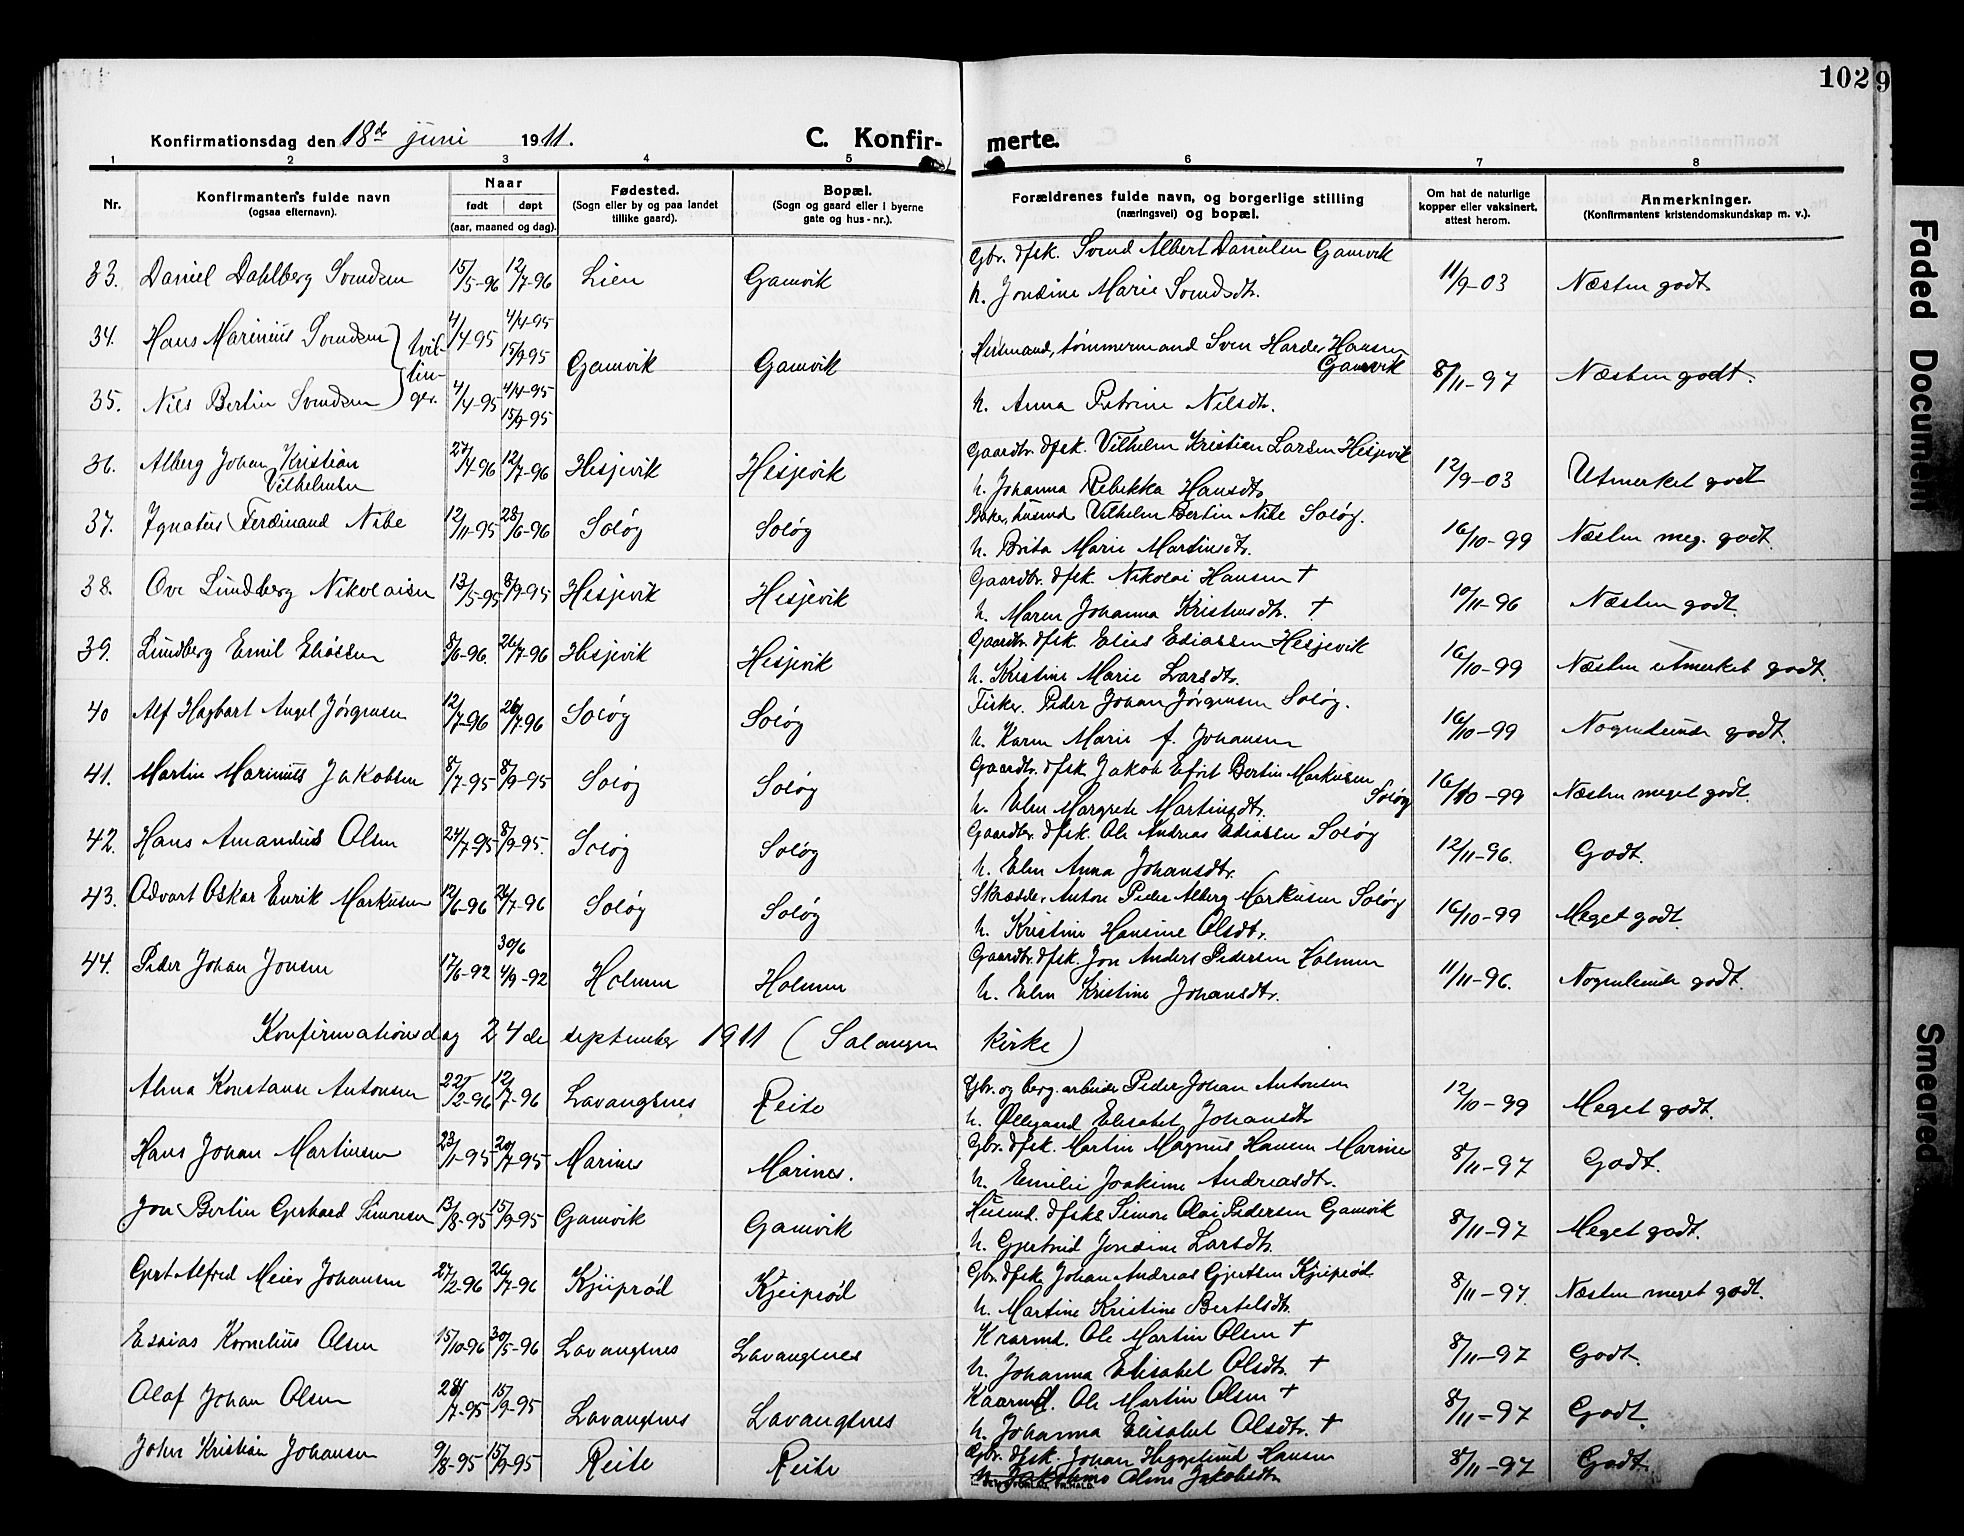 102 9
Konfirmationsdag den 18de juni 1911.
C. Konfir-
merte.
1 2 3 4 5 6 7 8
Nr.
Konfirmantens fulde navn
(ogsaa efternavn).
Naar
født døpt
(aar, maaned og dag).
Fødested.
(Sogn eller by og paa landet
tillike gaard).
Bopæl.
(Sogn og gaard eller i byerne
gate og hus-nr.).
Forældrenes fulde navn, og borgerlige stilling
(næringsvei) og bopæl.
Om hat de naturlige
kopper eller vaksinert,
attest herom.
Anmerkninger.
(Konfirmantens kristendomskundskap m. v.).
33. Daniel Dahlberg Svendsen 15/5-96 12/7-96 Lien Gamvik Gbr. dfsk. Svend Albert Danielsen Gamvik
h. Jondine Marie Svendsdtr. 11/9-03 Næsten godt
34. Hans Marinius Svendsen 4/4-95 4/4-95
15/9-95
tvil-
lin-
ger.
Gamvik Gamvik tømmermand Sven Harder Hansen
Gamvik 8/11-97 Næsten godt.
35. Nils Bertin Svendsen 4/4-95 4/4-95
15/9-95 h. Anna Petrine Nilsdtr.
36. Alberg Johan Kristian
Vilhelmsen 27/4-96 12/7-96 Hesjevik Hesjevik Gaardbr. dfsk. Vilhelm Kristian Larsen Hesjevik
h. Johanna Rebekka Hansdtr. 12/9-03 Utmerket godt
37. Ignatius Ferdinand Nibe 12/11-95 28/6-96 Soløy Soløy Vilhelm Bertin Nibe Soløy.
h. Brita Marie Martinsdtr. 16/10-99 Næsten meg. godt.
38. Ove Lundberg Nikolaisen 13/5-95 8/9-95 Hesjevik Hesjevik Gaardbr. dfsk. Nikolai Hansen †
h. Maren Johanna Kristensdtr. † 10/11-96 Næsten godt
39. Lundberg Emil Eliassen 8/6-96. 26/7-96 Hesjevik Hesjevik Gaardbr. dfsk. Elias Eliassen Hesjevik
h. Kristine Marie Larsdtr. 16/10-99 Næsten utmerket godt.
40 Alf Hagbart Angel Jørgensen 12/7-96 26/7-96 Soløy Soløy Fisker. Peder Johan Jørgensen Soløy.
h. Karen Marie f. Johansen 16/10-99 Nogenlunde godt.
41. Martin Marinius Jakobsen 8/7-95 8/9-95 Soløy Soløy Gaardbr. dfsk. Jakob Efvit Bertin Markusen
Soløy
h. Elen Margrete Martinsdtr. 16/10-99 Næsten meget godt.
42. Hans Amandus Olsen 24/7-95 8/9-95. Soløy Soløy Gaardbr. dfsk. Ole Andreas Eliassen Soløy
h. Elen Anna Johansdtr. 12/11-96. Godt.
43. Advart Oskar Enrik Markusen 12/6-96 26/7-96 Soløy Soløy Skrædder Anton Peder Alberg Markusen Soløy
h. Kristine Hansine Olsdtr. 16/10-99 Meget godt.
44. Peder Johan Jonsen 17/6-92 30/6
4/9-92 Holmen Holmen Gaardbr. dfsk. Jon Anders Pedersen Holmen
h. Elen Kristine Johansdtr. 11/11-96. Nogenlunde godt.
Konfirmationsdag 24de september 1911 (Salangen kirke)
Alma Konstanse Antonsen 22/2-96 12/7-96 Lavangsnes Reite Gbr. og berg.arbeider Peder Johan Antonsen
h. Øllegaard Elisabet Johansdtr. 12/10-99 Meget godt.
Hans Johan Martinsen 23/11-95 20/7-95 Marines Marines. Gbr. dfsk. Martin Magnus Hansen Marines
h. Emilie Joakime Andreasdtr. 8/11-97 Godt.
Jon Bertin Gerhard Simonsen 13/8-95 15/9-95 Gamvik Gamvik Husmd. dfske Simon Olai Pedersen Gamvik
h. Gjertrud Jondine Larsdtr. 8/11-97 Meget godt.
Gjert Alfred Meier Johansen 27/2-96 26/7-96 Kjeiprød Kjeiprød Gbr. dfsk. Johan Andreas Gjertsen Kjeiprød
h. Martine Kristine Bertelsdtr. 8/11-97. Næsten meget godt.
Esaias Kornelius Olsen 15/10-96 30/5-96 Lavangsnes Lavangsnes Ole Martin Olsen †
h. Johanna Elisabet Olsdtr. † 8/11-97 Godt.
Olaf Johan Olsen 28/7-95 15/9-95 Lavangsnes Lavangsnes Ole Martin Olsen †
h. Johanna Elisabet Olsdtr. † 8/11-97 Godt.
John Kristian Johansen 9/8-95 15/9-95 Reite Reite Gbr. dfsk. Johan Heggelund Hansen
h. Oline Jakobsdtr. 8/11-97 Godt.
Faded Document
Smeared